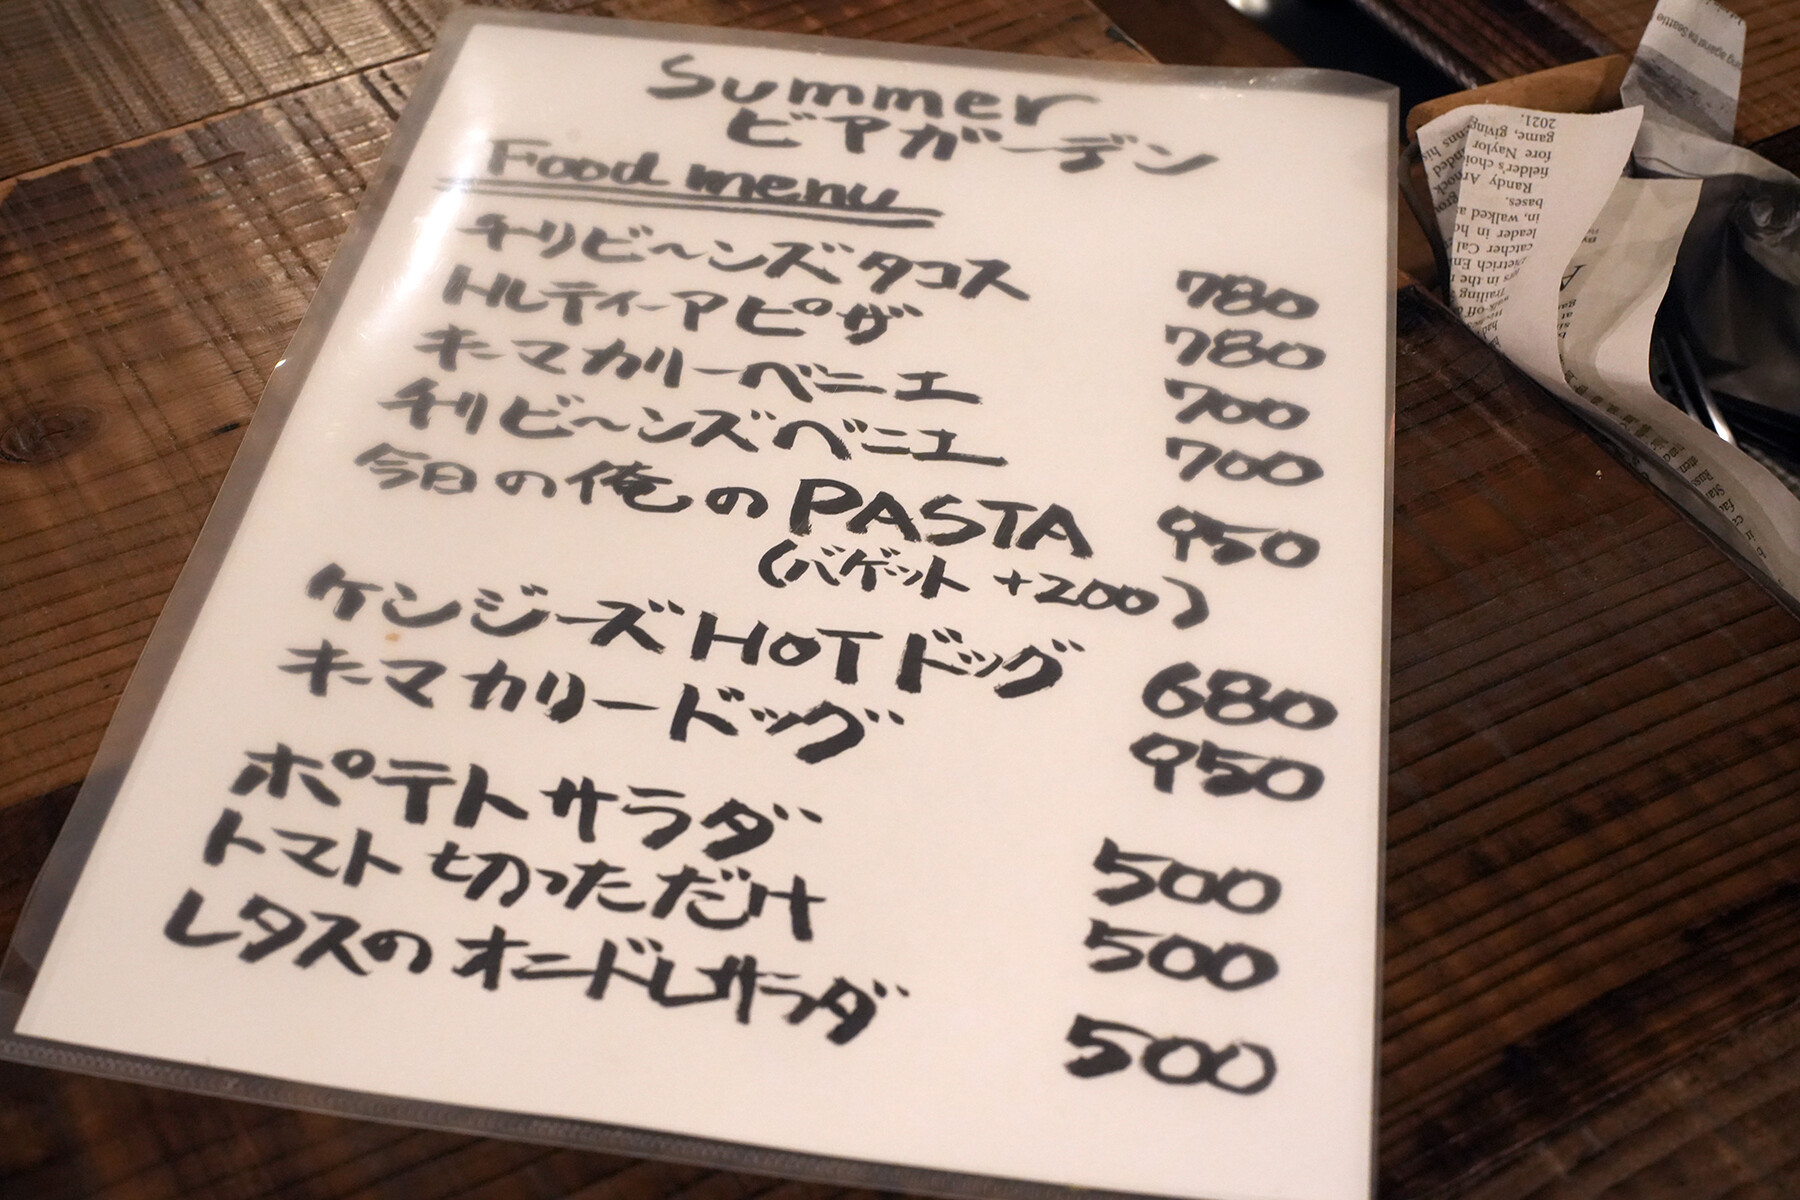 Summer
ビアガーデン
Food menu
チリビ〜ンズタコス 780
トルティーアピザ 780
キーマカリーベニエ 700
チリビ〜ンズベニエ 700
今日の俺のPASTA 950
(バゲット +200)
ケンジーズHOTドッグ 680
キーマカリードッグ 950
ポテトサラダ 500
トマト切っただけ 500
レタスのオニドレサラダ 500
2021.
game, giving
fore Naylor
fielder's choi
Randy Arnock
bases.
in, walked a
leader in ho
catcher Cal
Dietrich En